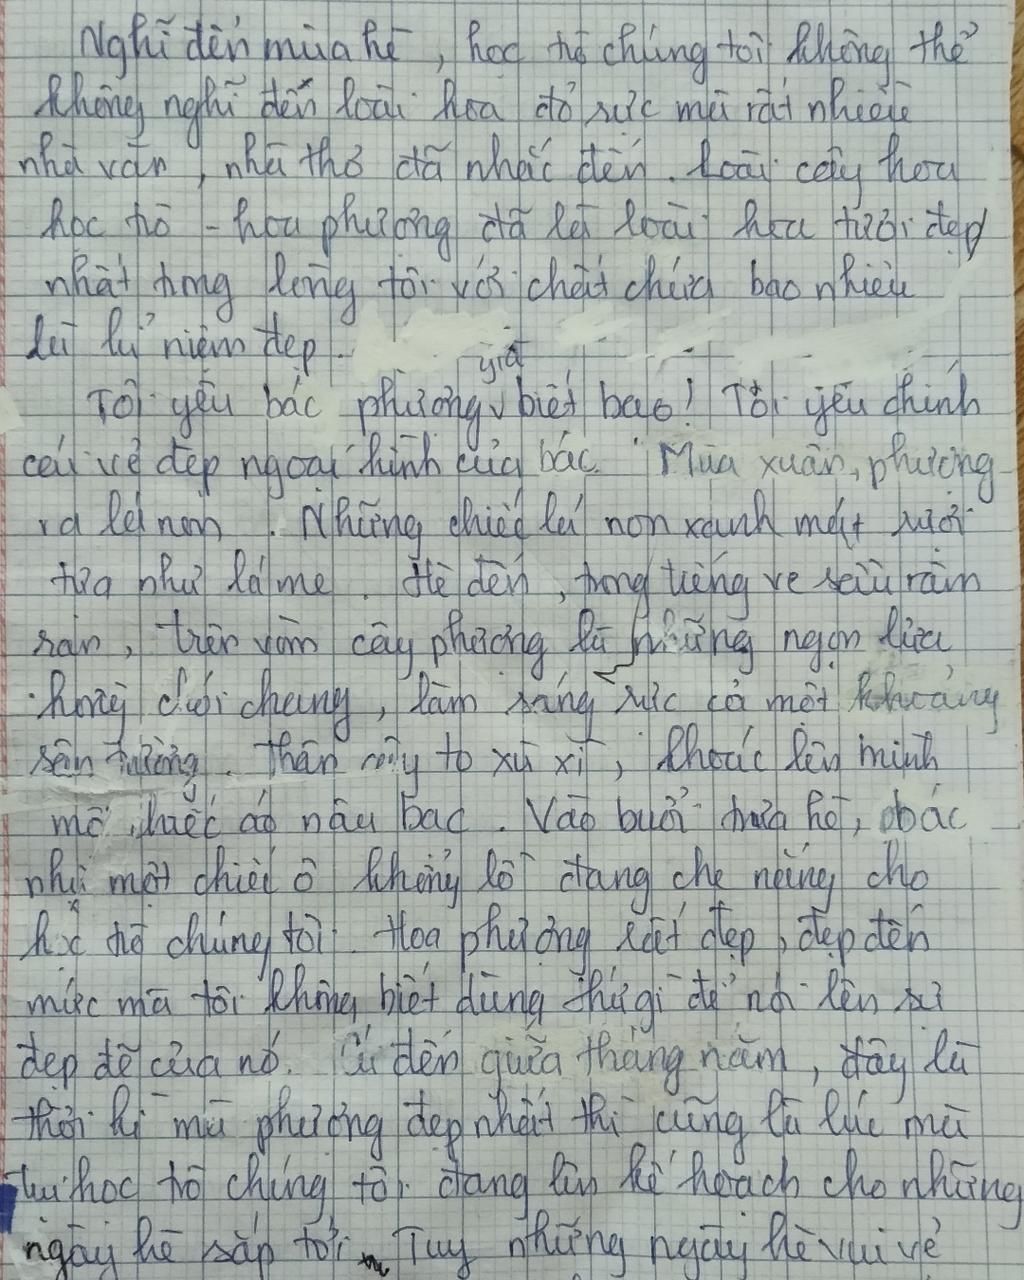 Nghĩ đến mùa hè, học trò chúng tôi không thể
không nghĩ đến loài hoa đỏ rực mà rất nhiều
nhà văn, nhà thơ đã nhắc đến. Loài cây hoa
học trò - hoa phượng đã là loài hoa tươi đẹp
nhất trong lòng tôi với chất chứa bao nhiêu
kỉ niệm đẹp.
Tôi yêu bác phượng già biết bao! Tôi yêu chính
cái vẻ đẹp ngoại hình của bác. Mùa xuân, phượng
ra lá non. Những chiếc lá non xanh mát rượi
tựa như lá me. Hè đến, trong tiếng ve sầu râm
ran, trên vòm cây phượng là những ngọn lửa
hồng cháy, làm sáng rực cả một khoảng
sân trường. Thân cây to xù xì, khoác lên mình
một chiếc áo nâu bạc. Vào buổi trưa hè, bác
như một chiếc ô khổng lồ đang che nắng cho
học trò chúng tôi. Hoa phượng rất đẹp, đẹp đến
mức mà tôi không biết dùng thứ gì để nói lên sự
đẹp đẽ của nó. Cứ đến giữa tháng năm, đây là
thời kì mà phượng đẹp nhất thì cũng là lúc mà
lũ học trò chúng tôi đang lên kế hoạch cho những
ngày hè sắp tới. Tuy những ngày hè vui vẻ